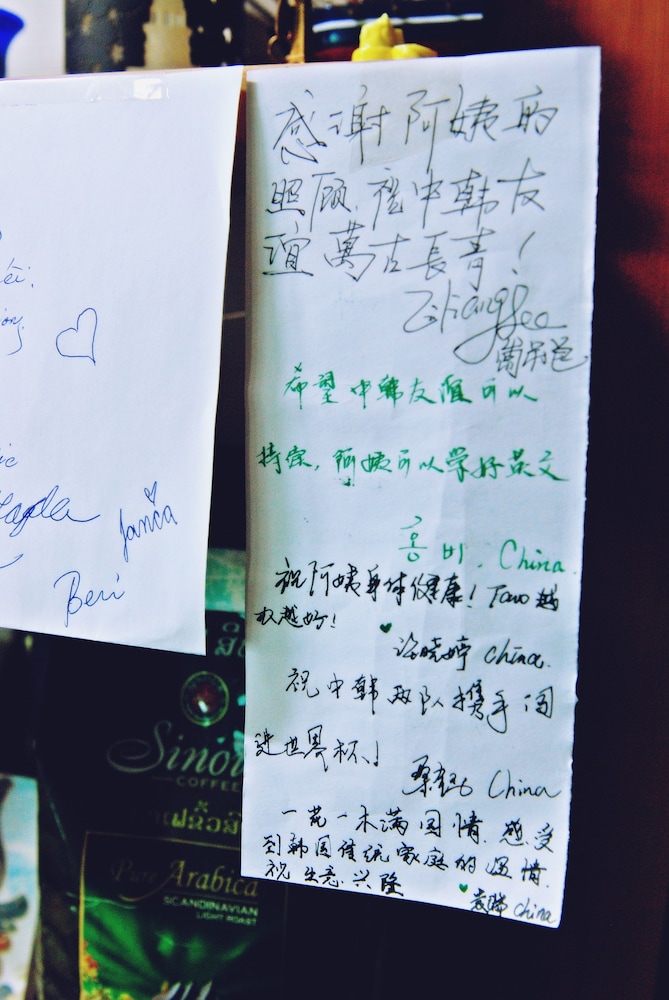 感谢阿姨的
照顾,祝中韩友
谊萬古長青!
希望中韩友谊可以
持续,阿姨可以学好英文
홍비. China.
祝阿姨身体健康! Tawo 越
越好!
许晓婷 China.
祝中韩两队携手闯
进世界杯!
China
一花一木满园情,感受
到韩国传统家庭的温情.
祝生意兴隆
China
Janča
Beri
Sinou
COFFEE
Pure Arabica
SCANDINAVIAN
LIGHT ROAST